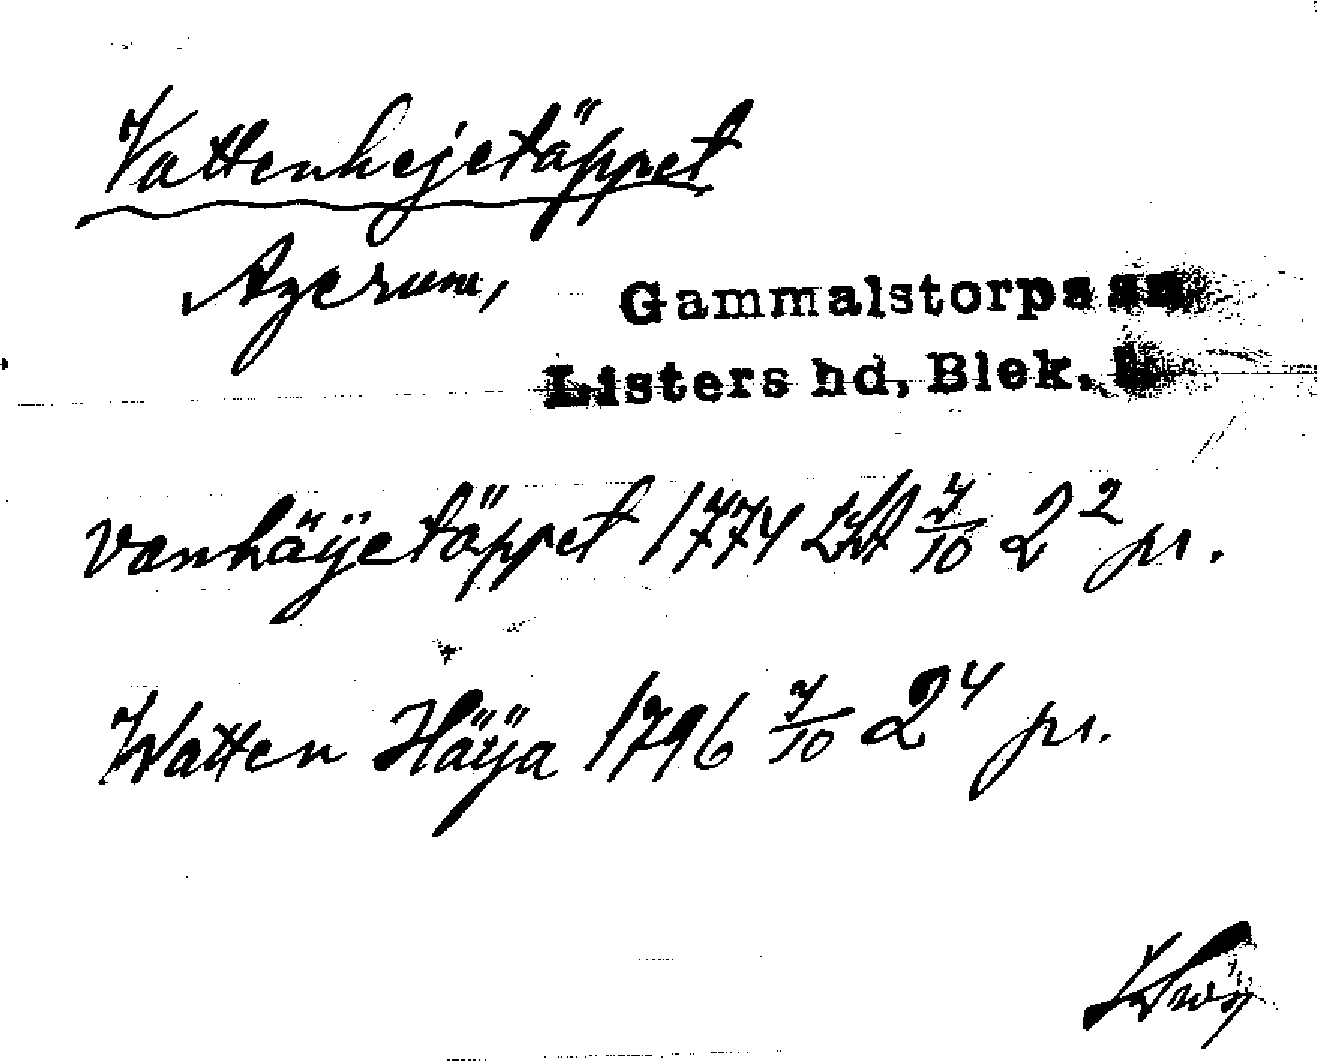 Vattenhejetäppet
Agerum,
Gammalstorps sn
Listers hd, Blek. l.
vanhäÿetäppet 1774 7/10 2² pr.
Watten Häÿa 1796 7/10 2⁴ pr.